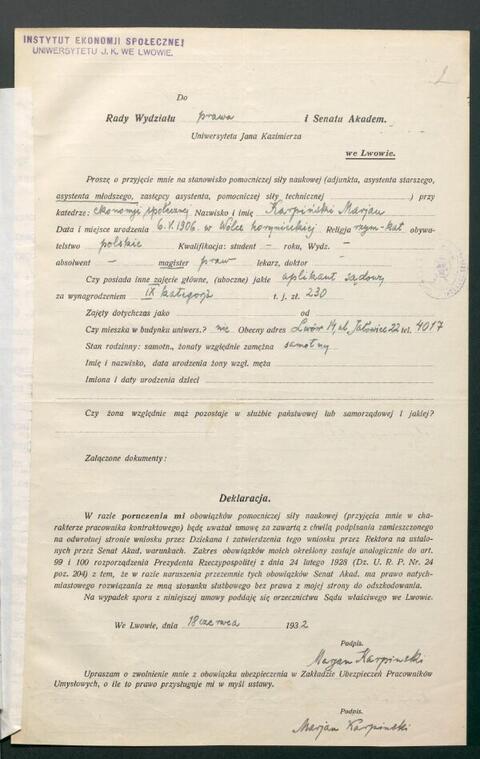 INSTYTUT EKONOMJI SPOŁECZNEJ
UNIWERSYTETU J. K. WE LWOWIE.
Do
Rady Wydziału prawa i Senatu Akadem.
Uniwersytetu Jana Kazimierza
we Lwowie.
Proszę o przyjęcie mnie na stanowisko pomocniczej siły naukowej (adjunkta, asystenta starszego,
asystenta młodszego, zastępcy asystenta, pomocniczej siły technicznej ) przy
katedrze: ekonomji społecznej Nazwisko i imię Karpiński Marjan
Data i miejsce urodzenia 6.V.1906. w Wólce horynieckiej Religja rzym-kat obywa-
telstwo polskie Kwalifikacja: student – roku, Wydz. –
absolwent – magister praw lekarz, doktor –
Czy posiada inne zajęcie główne, (uboczne) jakie aplikant sądowy
za wynagrodzeniem IX kategorja t. j. zł. 230
Zajęty dotychczas jako od
Czy mieszka w budynku uniwers.? nie Obecny adres Lwów 14, ul. Jałowiec 22 tel. 4017
Stan rodzinny: samotn., żonaty względnie zamężna samotny
Imię i nazwisko, data urodzenia żony wzgl. męża
Imiona i daty urodzenia dzieci
Czy żona względnie mąż pozostaje w służbie państwowej lub samorządowej i jakiej?
Załączone dokumenty:
Deklaracja.
W razie poruczenia mi obowiązków pomocniczej siły naukowej (przyjęcia mnie w cha-
rakterze pracownika kontraktowego) będę uważał umowę za zawartą z chwilą podpisania zamieszczonego
na odwrotnej stronie wniosku przez Dziekana i zatwierdzenia tego wniosku przez Rektora na ustalo-
nych przez Senat Akad. warunkach. Zakres obowiązków moich określony zostaje analogicznie do art.
99 i 100 rozporządzenia Prezydenta Rzeczypospolitej z dnia 24 lutego 1928 (Dz. U. R. P. Nr. 24
poz. 204) z tem, że w razie naruszenia przezemnie tych obowiązków Senat Akad. ma prawo natych-
miastowego rozwiązania ze mną stosunku służbowego bez prawa z mojej strony do odszkodowania.
Na wypadek sporu z niniejszej umowy poddaję się orzecznictwu Sądu właściwego we Lwowie.
We Lwowie, dnia 18 czerwca 1932
Podpis.
Marjan Karpiński
Upraszam o zwolnienie mnie z obowiązku ubezpieczenia w Zakładzie Ubezpieczeń Pracowników
Umysłowych, o ile to prawo przysługuje mi w myśl ustawy.
Podpis.
Marjan Karpiński